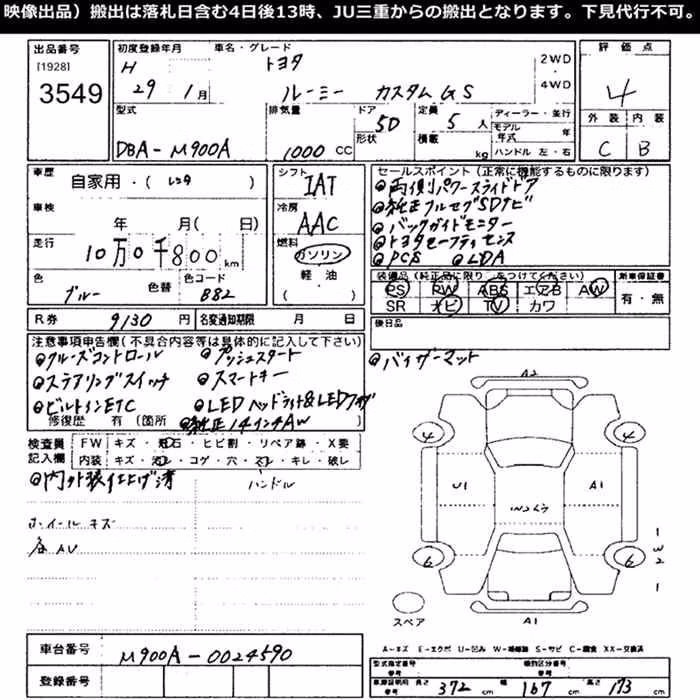 映像出品）搬出は落札日含む4日後13時、JU三重からの搬出となります。下見代行不可。
出品番号 初度登録年月 車名・グレード 評価点
[1928] H トヨタ 2WD
3549 29 1月 ルーミー カスタムGS 4WD 4
型式 排気量 ドア 定員 ディーラー・並行 外装 内装
5D 5人 モデル年式 年
形状 積載 kg ハンドル 左・右 C B
DBA-M900A 1000 CC
車歴 自家用・(レンタ) シフト IAT セールスポイント(正常に機能するものに限ります)
両側パワースライドドア
車検 年 月( 日) 冷房 AAC 純正フルセグSDナビ
バックガイドモニター
走行 10万0千800km 燃料 ガソリン トヨタセーフティセンス
軽油 PCS LDA
色 ブルー 色替 色コード B82 ( )
装備品(純正品に限り をつけてください) 新車保証書
PS PW ABS エアB AW 有・無
SR ナビ TV カワ
R券 9130円 名変通知期限 月 日 後日品
注意事項申告欄(不具合内容等は具体的に記入して下さい) バイザーマット
クルーズコントロール プッシュスタート
ステアリングスイッチ スマートキー
ビルトインETC LEDヘッドライト&LEDフォグ
修復歴 有(箇所 純正14インチAW )
検査員 FW キズ・飛石・ヒビ割・リペア跡・X要
記入欄 内装 キズ・汚レ・コゲ・穴・スレ・キレ・破レ
内外装仕上げ済 ハンドル
ホイールキズ
各AU
A2
4 4
U1 A1
6 6
1
W2
1
スペア A1
A-キズ E-エクボ U-凹み W-補修跡 S-サビ C-腐食 XX-交換済
車台番号 M900A-0024590
型式指定番号 参考 類別区分番号 参考
登録番号 車検証明用 参考 長さ 372 cm 幅 167 cm 高さ 173 cm